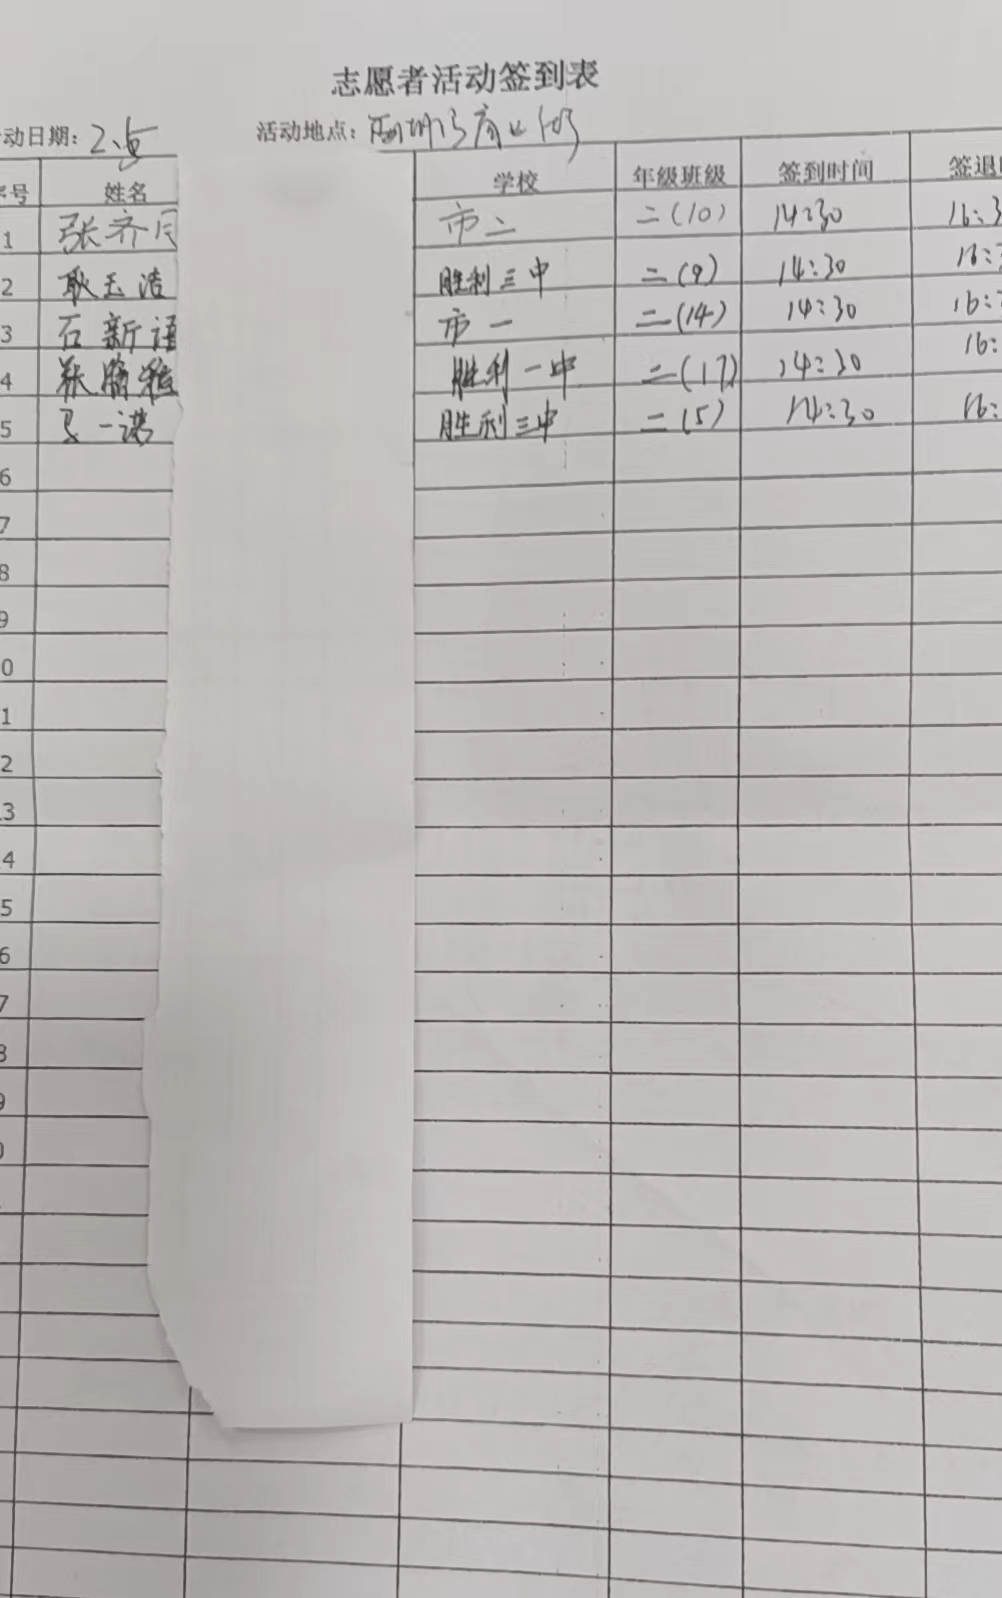 志愿者活动签到表
动日期：2.5 活动地点：
序号 姓名 学校 年级班级 签到时间 签退
1 张齐 市二 二(10) 14:30 16:3
2 耿玉洁 胜利三中 二(9) 14:30 16:
3 石新语 市一 二(14) 14:30 16:
4 胜利一中 二(17) 14:30 16:
5 一诺 胜利三中 二(5) 14:30 16:
6
7
8
9
0
1
2
3
4
5
6
7
8
9
0